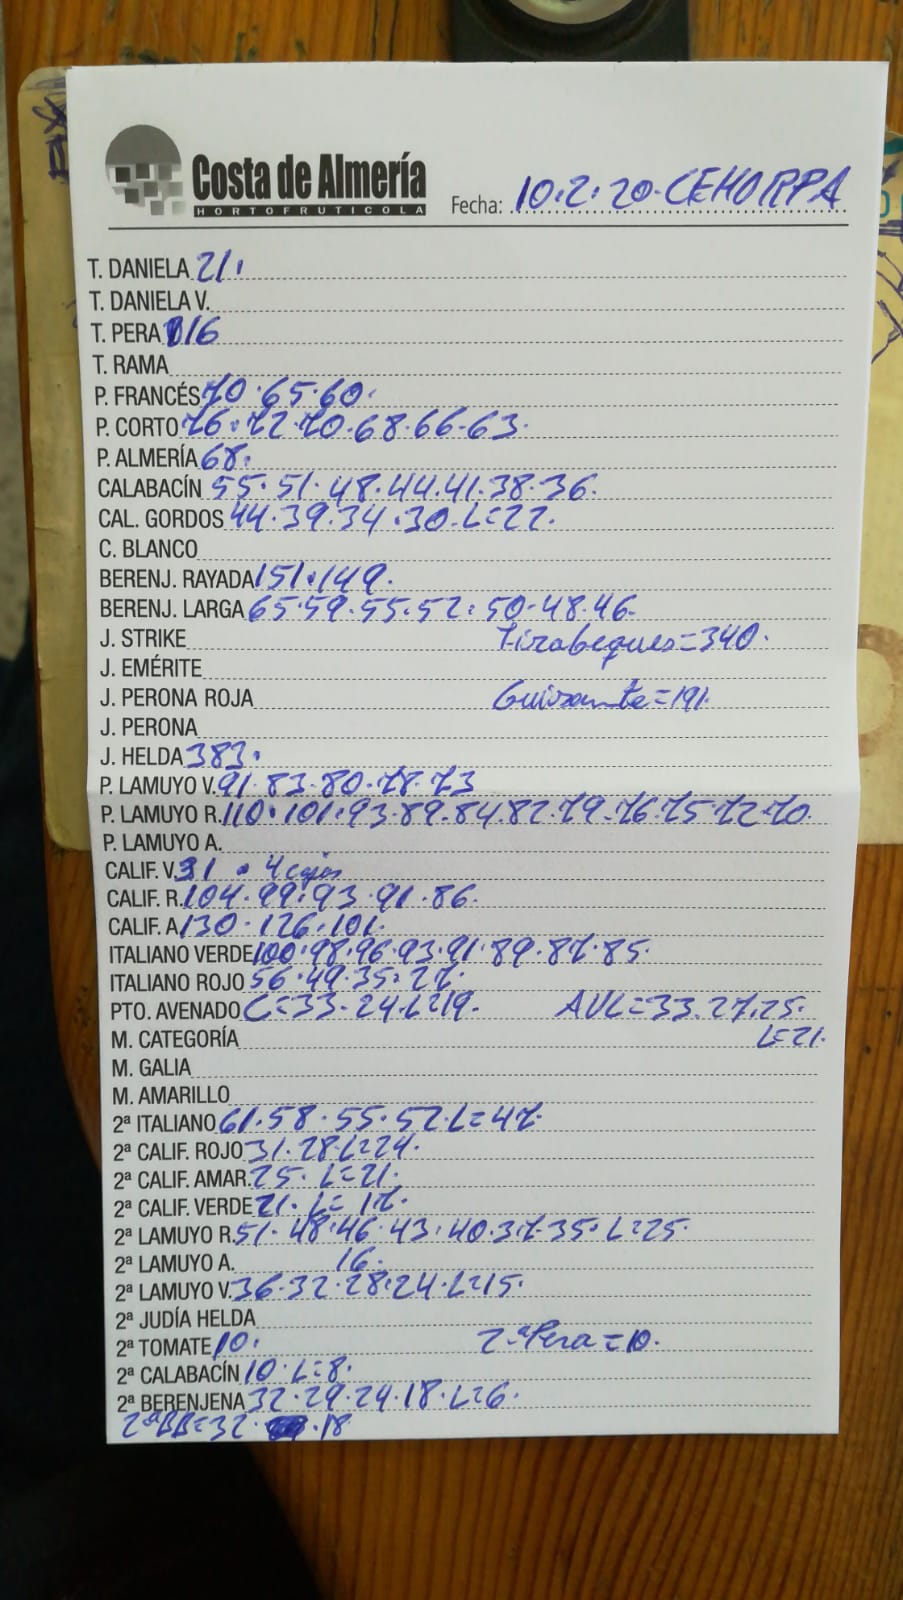 Costa de Almería
HORTOFRUTICOLA
Fecha: 10·2·20·CEHORPA
T. DANIELA 21·
T. DANIELA V.
T. PERA 16
T. RAMA
P. FRANCÉS 70·65·60·
P. CORTO 76·72·70·68·66·63·
P. ALMERÍA 68·
CALABACÍN 55·51·48·44·41·38·36·
CAL. GORDOS 44·39·34·30·L=22·
C. BLANCO
BERENJ. RAYADA 151·149·
BERENJ. LARGA 65·59·55·52·50·48·46·
J. STRIKE Tirabeques=340·
J. EMÉRITE
J. PERONA ROJA Guisante=191·
J. PERONA
J. HELDA 383·
P. LAMUYO V. 91·83·80·78·73
P. LAMUYO R. 110·101·93·89·84·82·79·76·75·72·70·
P. LAMUYO A.
CALIF. V. 31 · 4 cajas
CALIF. R. 104·99·93·91·86·
CALIF. A 130·126·101·
ITALIANO VERDE 100·98·96·93·91·89·87·85·
ITALIANO ROJO 56·49·35·27·
PTO. AVENADO C=33·24·L=19· AVL=33·27·25·
L=21·
M. CATEGORÍA
M. GALIA
M. AMARILLO
2ª ITALIANO 61·58·55·52·L=47·
2ª CALIF. ROJO 31·28·L=24·
2ª CALIF. AMAR. 25·L=21·
2ª CALIF. VERDE 21·L=17·
2ª LAMUYO R. 51·48·46·43·40·37·35·L=25·
2ª LAMUYO A. 16·
2ª LAMUYO V. 36·32·28·24·L=15·
2ª JUDÍA HELDA
2ª TOMATE 10· 2ªPera=10·
2ª CALABACÍN 10·L=8·
2ª BERENJENA 32·29·24·18·L=6·
2ªBB=32· ·18